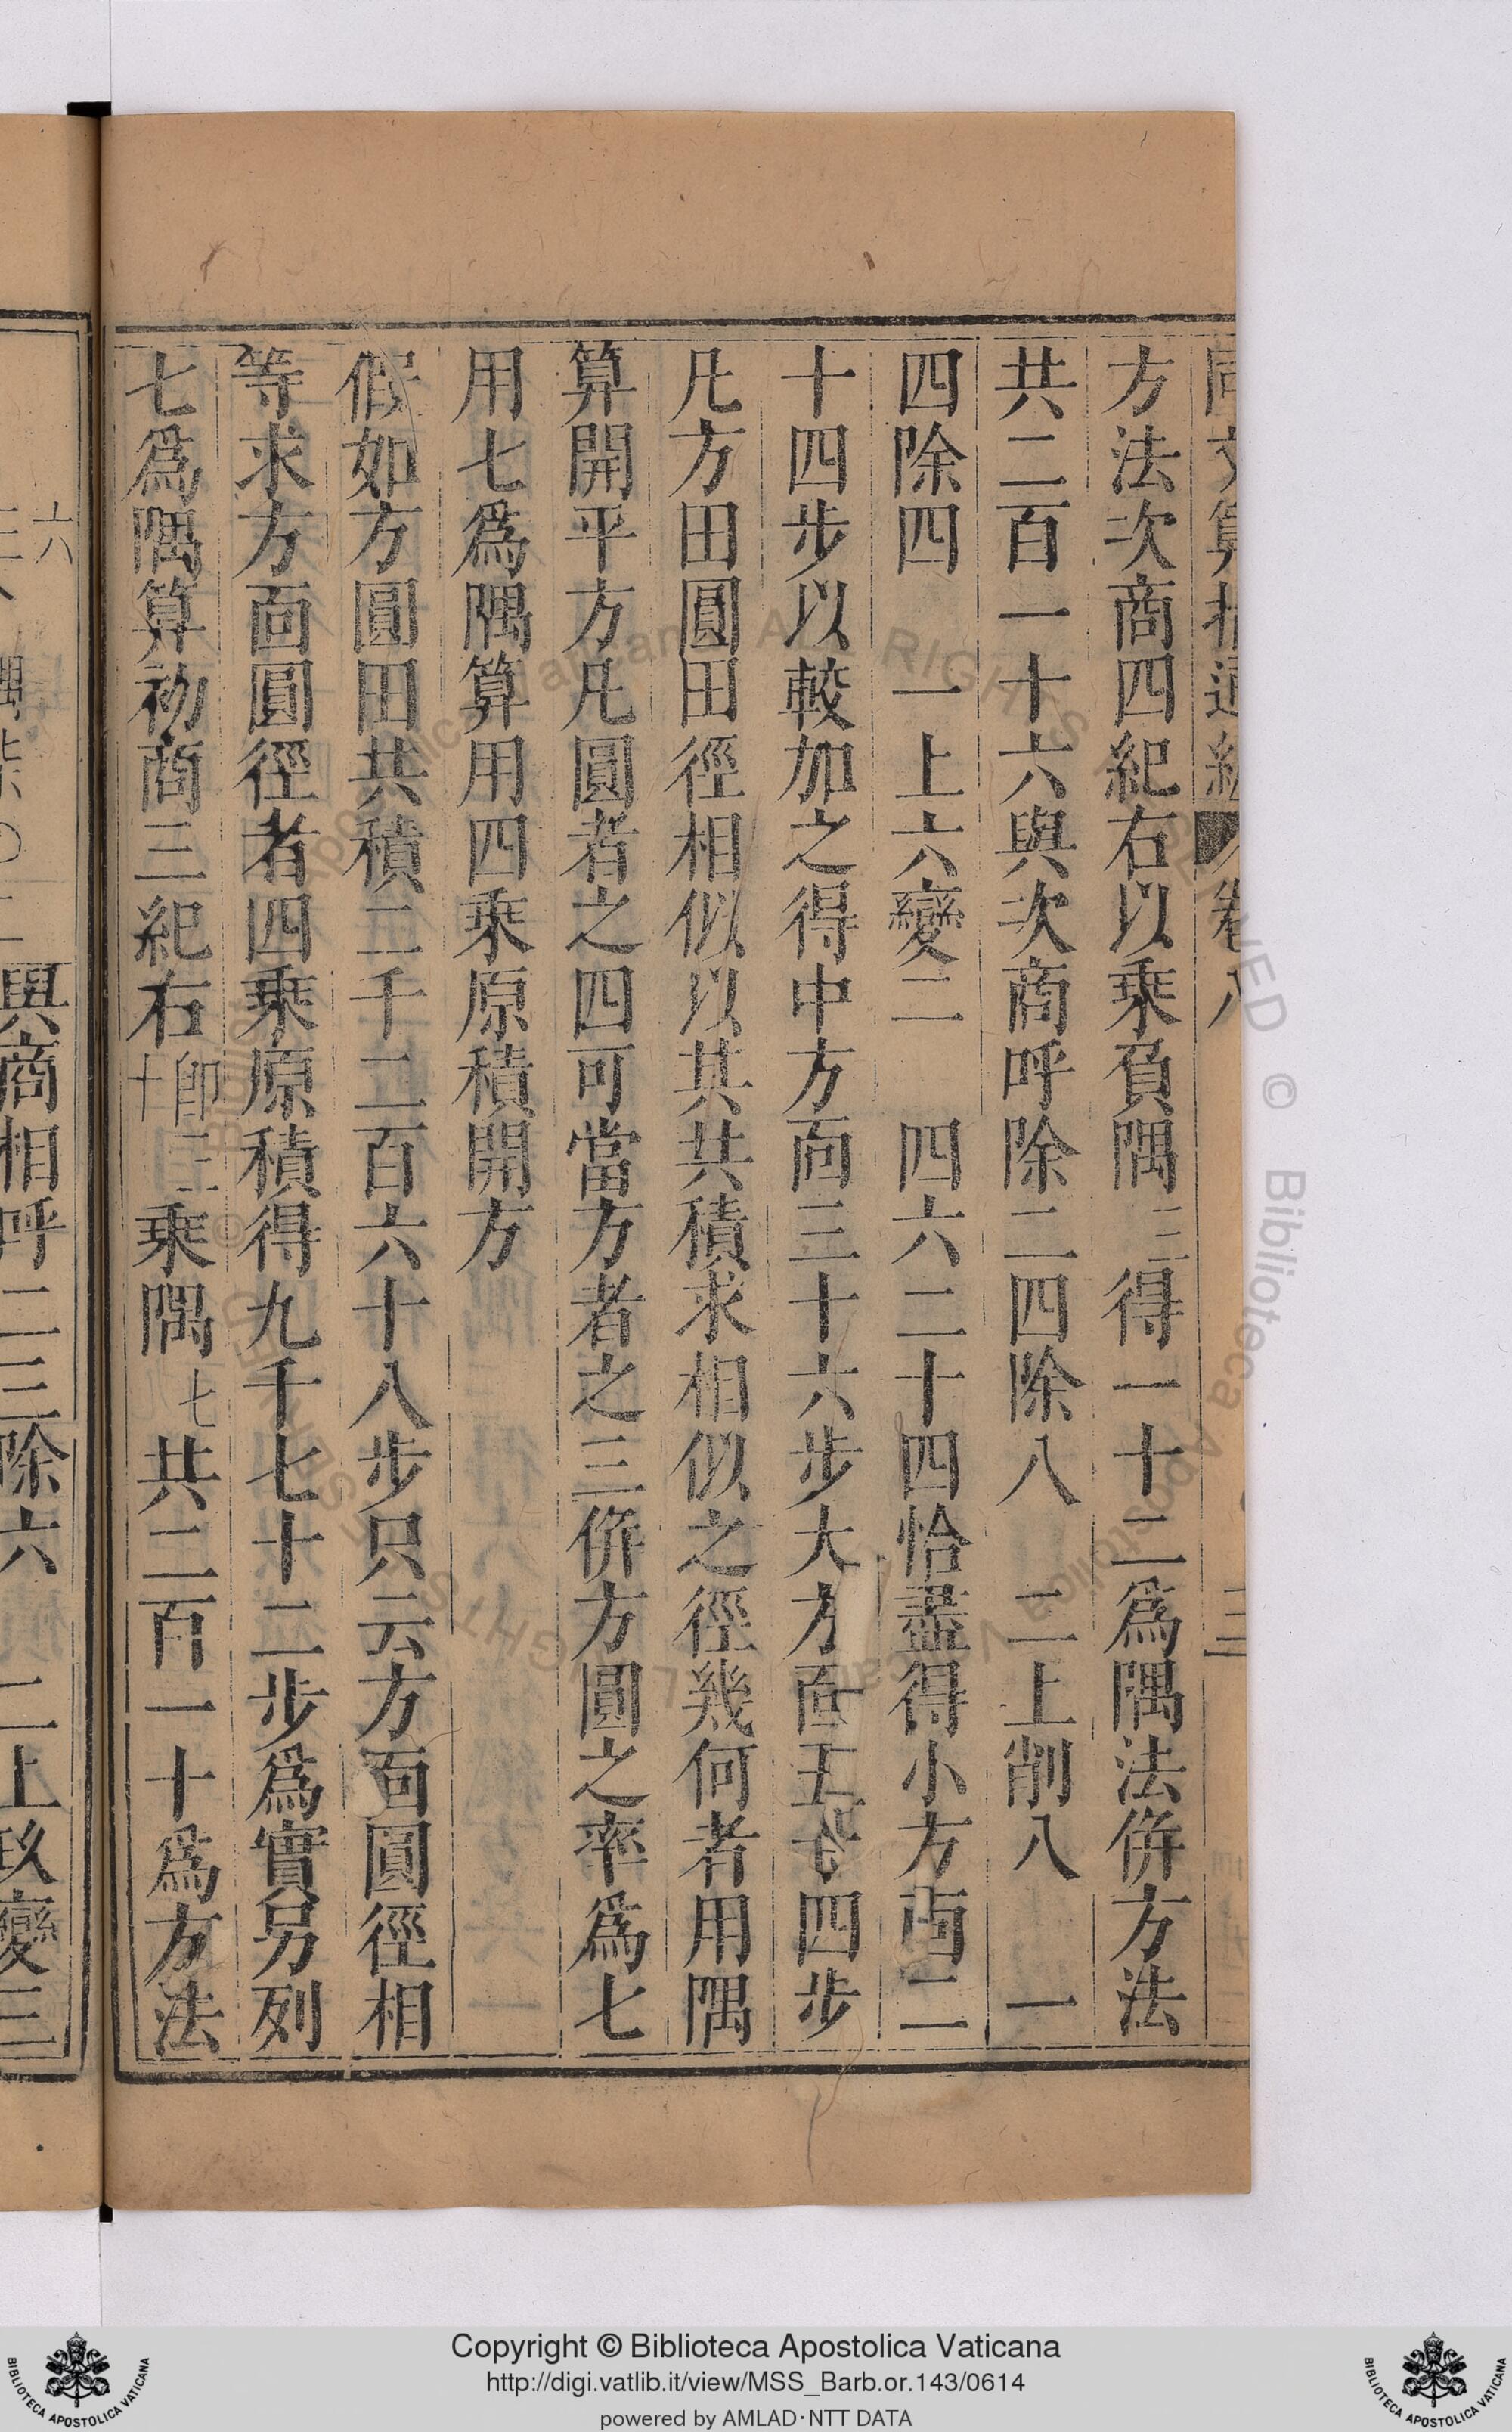 方法次商四紀右以乘負隅三得一十二爲隅法倂方法
共二百一十六與次商呼除二四除八 二上削八 一
四除四 一上六變二 四六二十四恰盡得小方面二
十四步以較加之得中方面三十六步大方面五十四步
凡方田圓田徑相似以其共積求相似之徑幾何者用隅
算開平方凡圓者之四可當方者之三倂方圓之率爲七
用七爲隅算用四乘原積開方
假如方圓田共積二千二百六十八步只云方面圓徑相
等求方面圓徑者四乘原積得九千七十二步爲實另列
七爲隅算初商三紀右卽三十乘隅七共二百一十爲方法
與商相呼二三除六 二上玖變三
Copyright © Biblioteca Apostolica Vaticana
http://digi.vatlib.it/view/MSS_Barb.or.143/0614
powered by AMLAD·NTT DATA
BIBLIOTECA APOSTOLICA VATICANA
BIBLIOTECA APOSTOLICA VATICANA